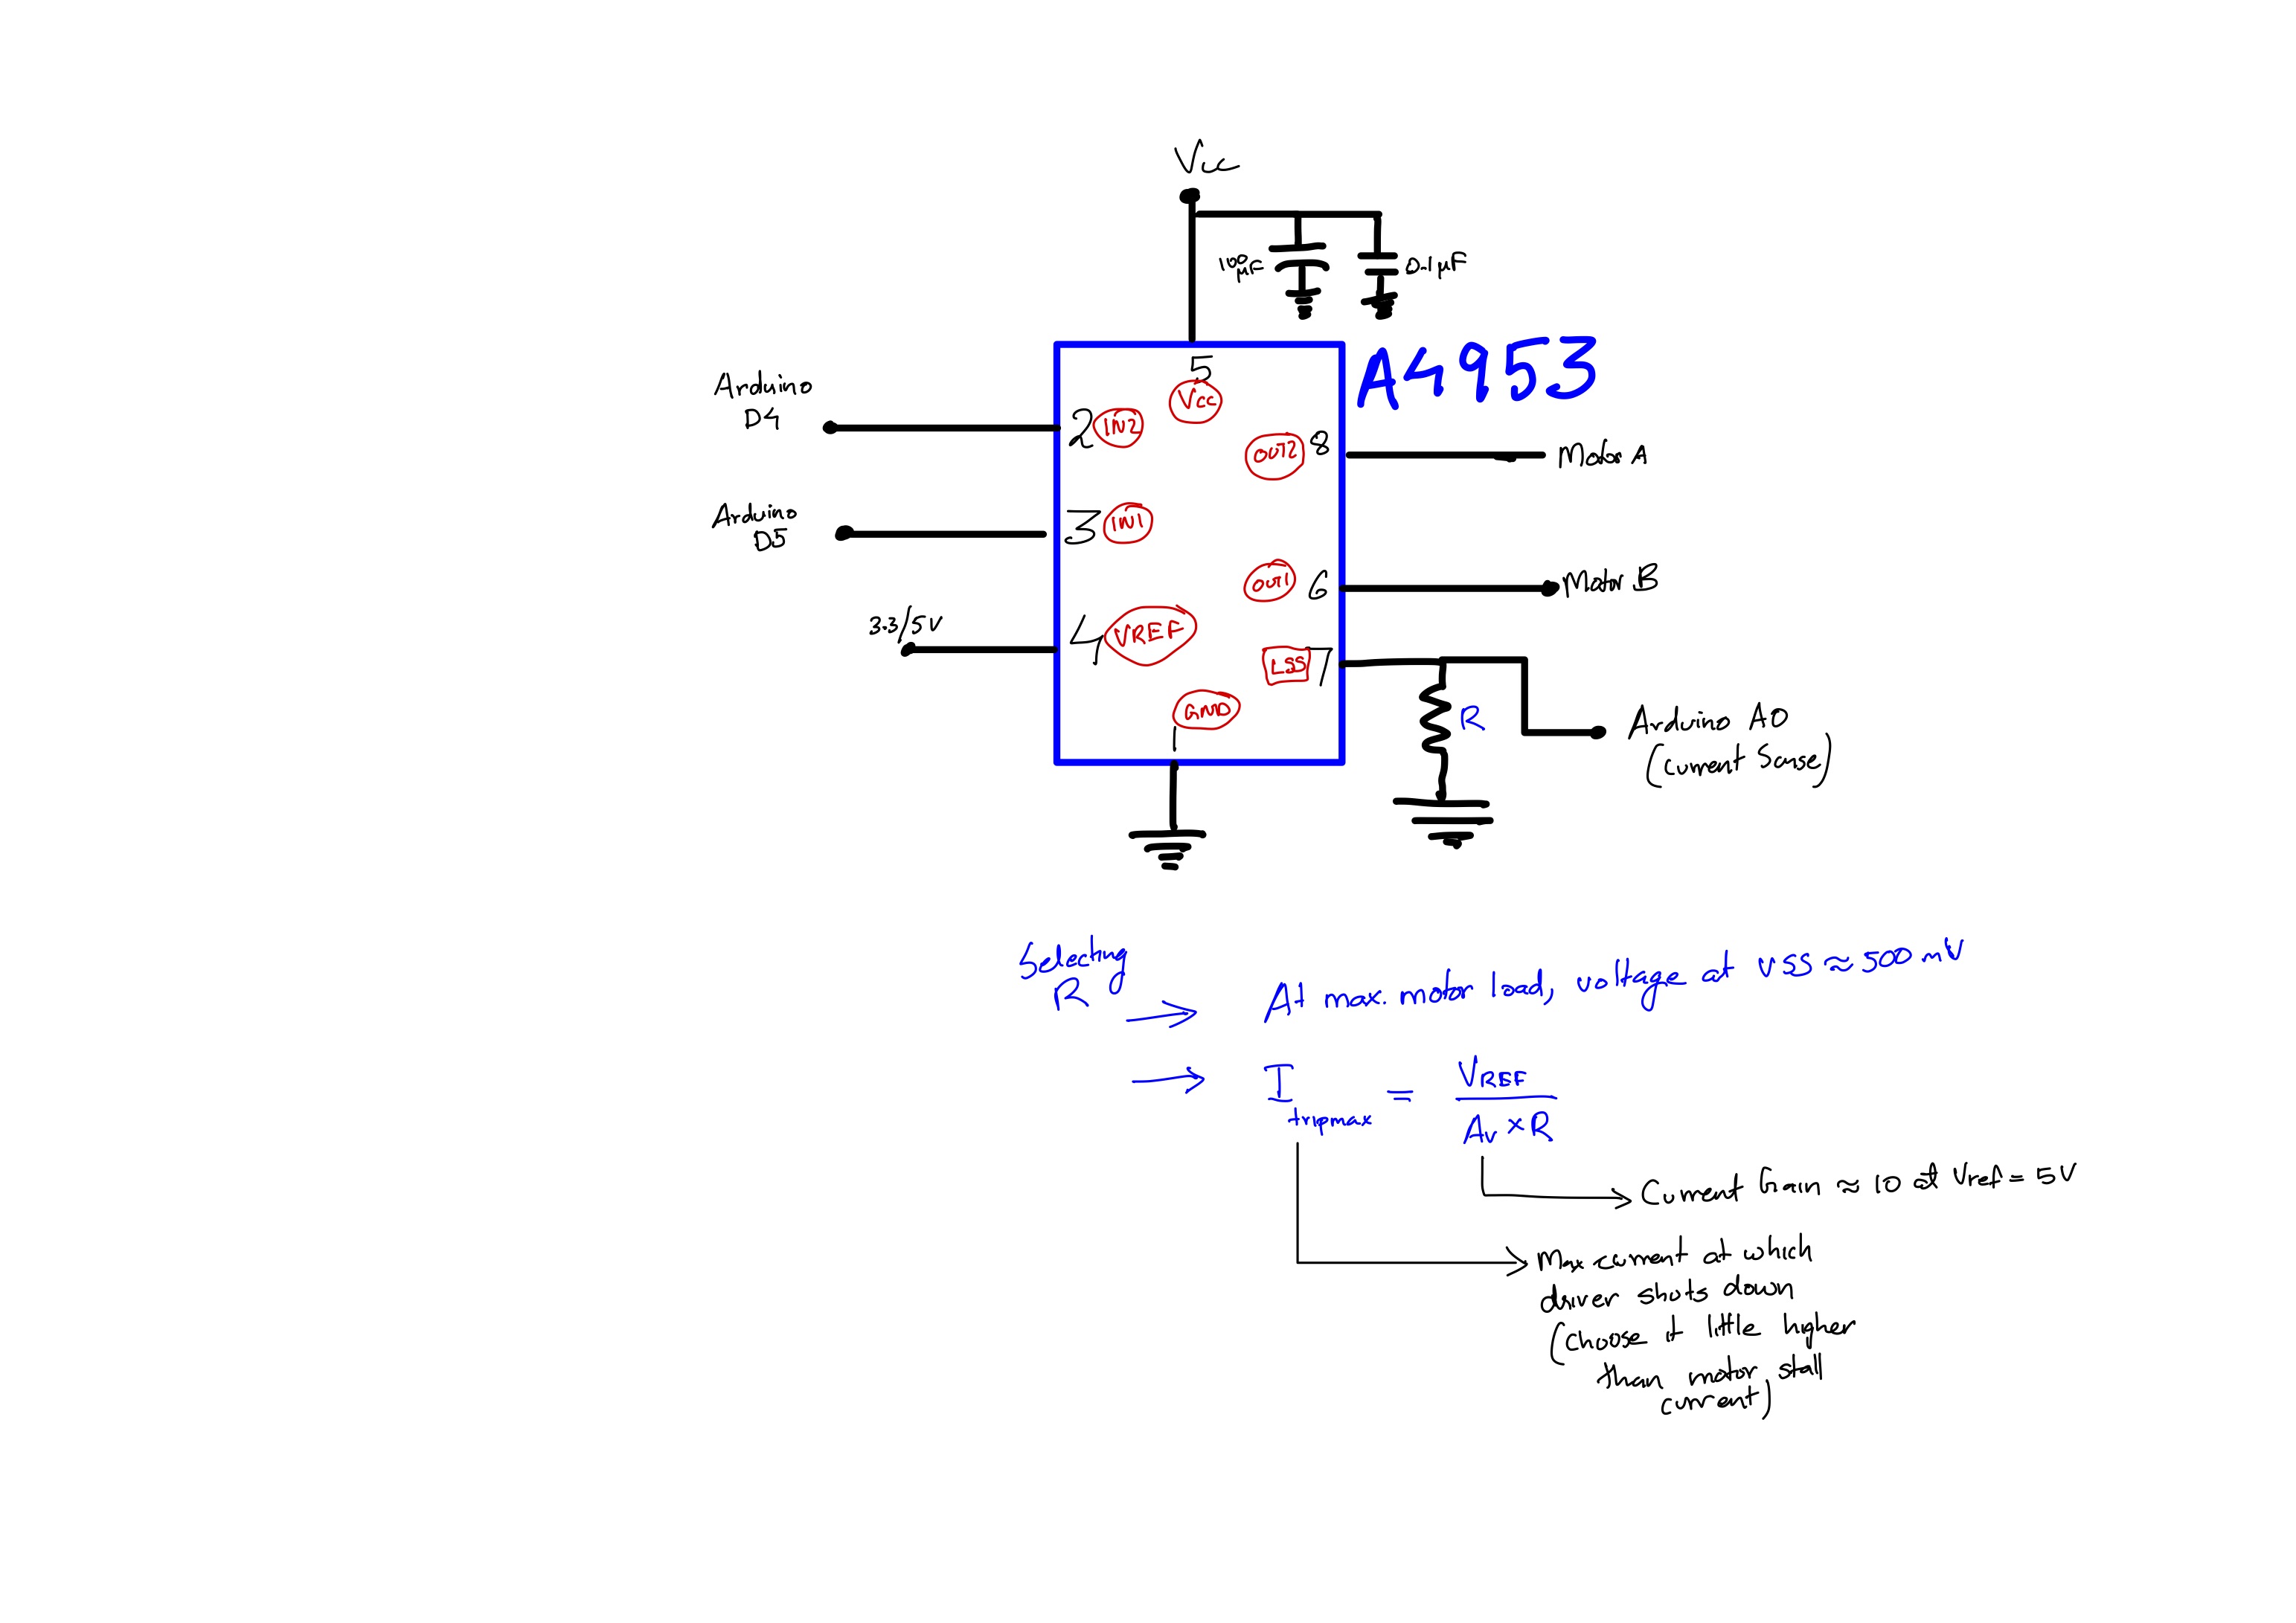 Vcc
100
µF
0.1µF
A4953
5
Vcc
Arduino
D4
2 IN2
OUT2 8
Motor A
Arduino
D5
3 IN1
OUT1 6
Motor B
3.3/5V
4 VREF
LSS 7
GND
1
R
Arduino A0
(Current Sense)
Selecting
R
At max. motor load, voltage at VSS ≈ 500 mV
I tripmax = VREF / Av × R
Current Gain ≈ 10 at Vref = 5V
Max current at which
driver shuts down
(choose it little higher
than motor stall
current)